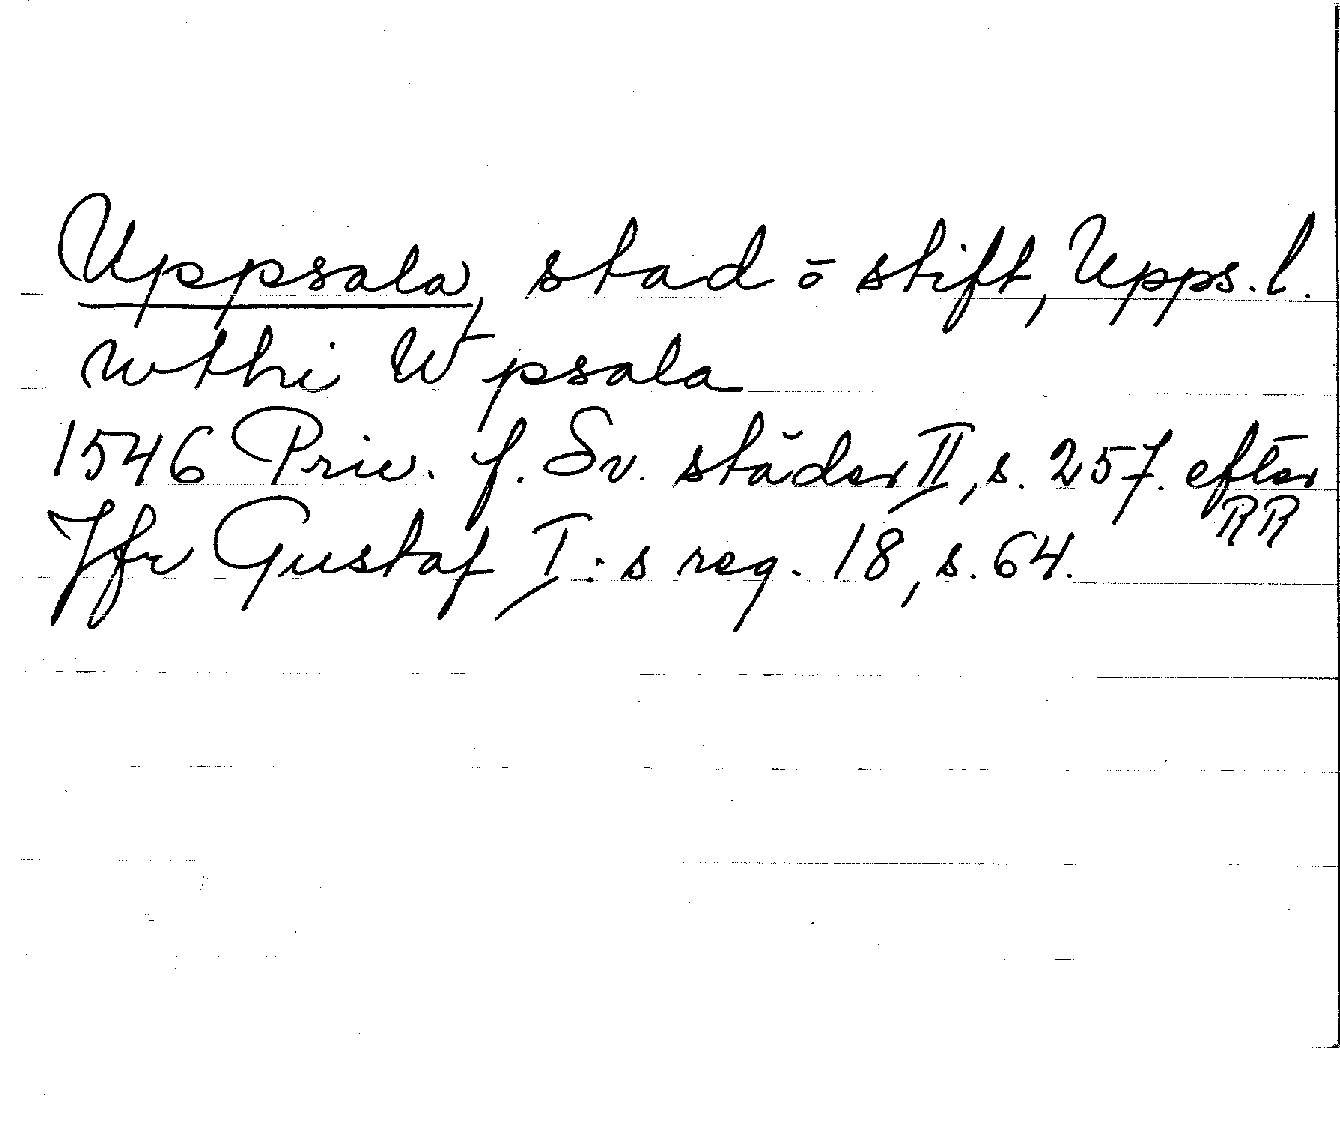 Uppsala, stad o stift, Upps. l.
wthi Wpsala
1546 Priv. f. Sv. städer II, s. 257. efter
RR
Jfr Gustaf I:s reg. 18, s. 64.